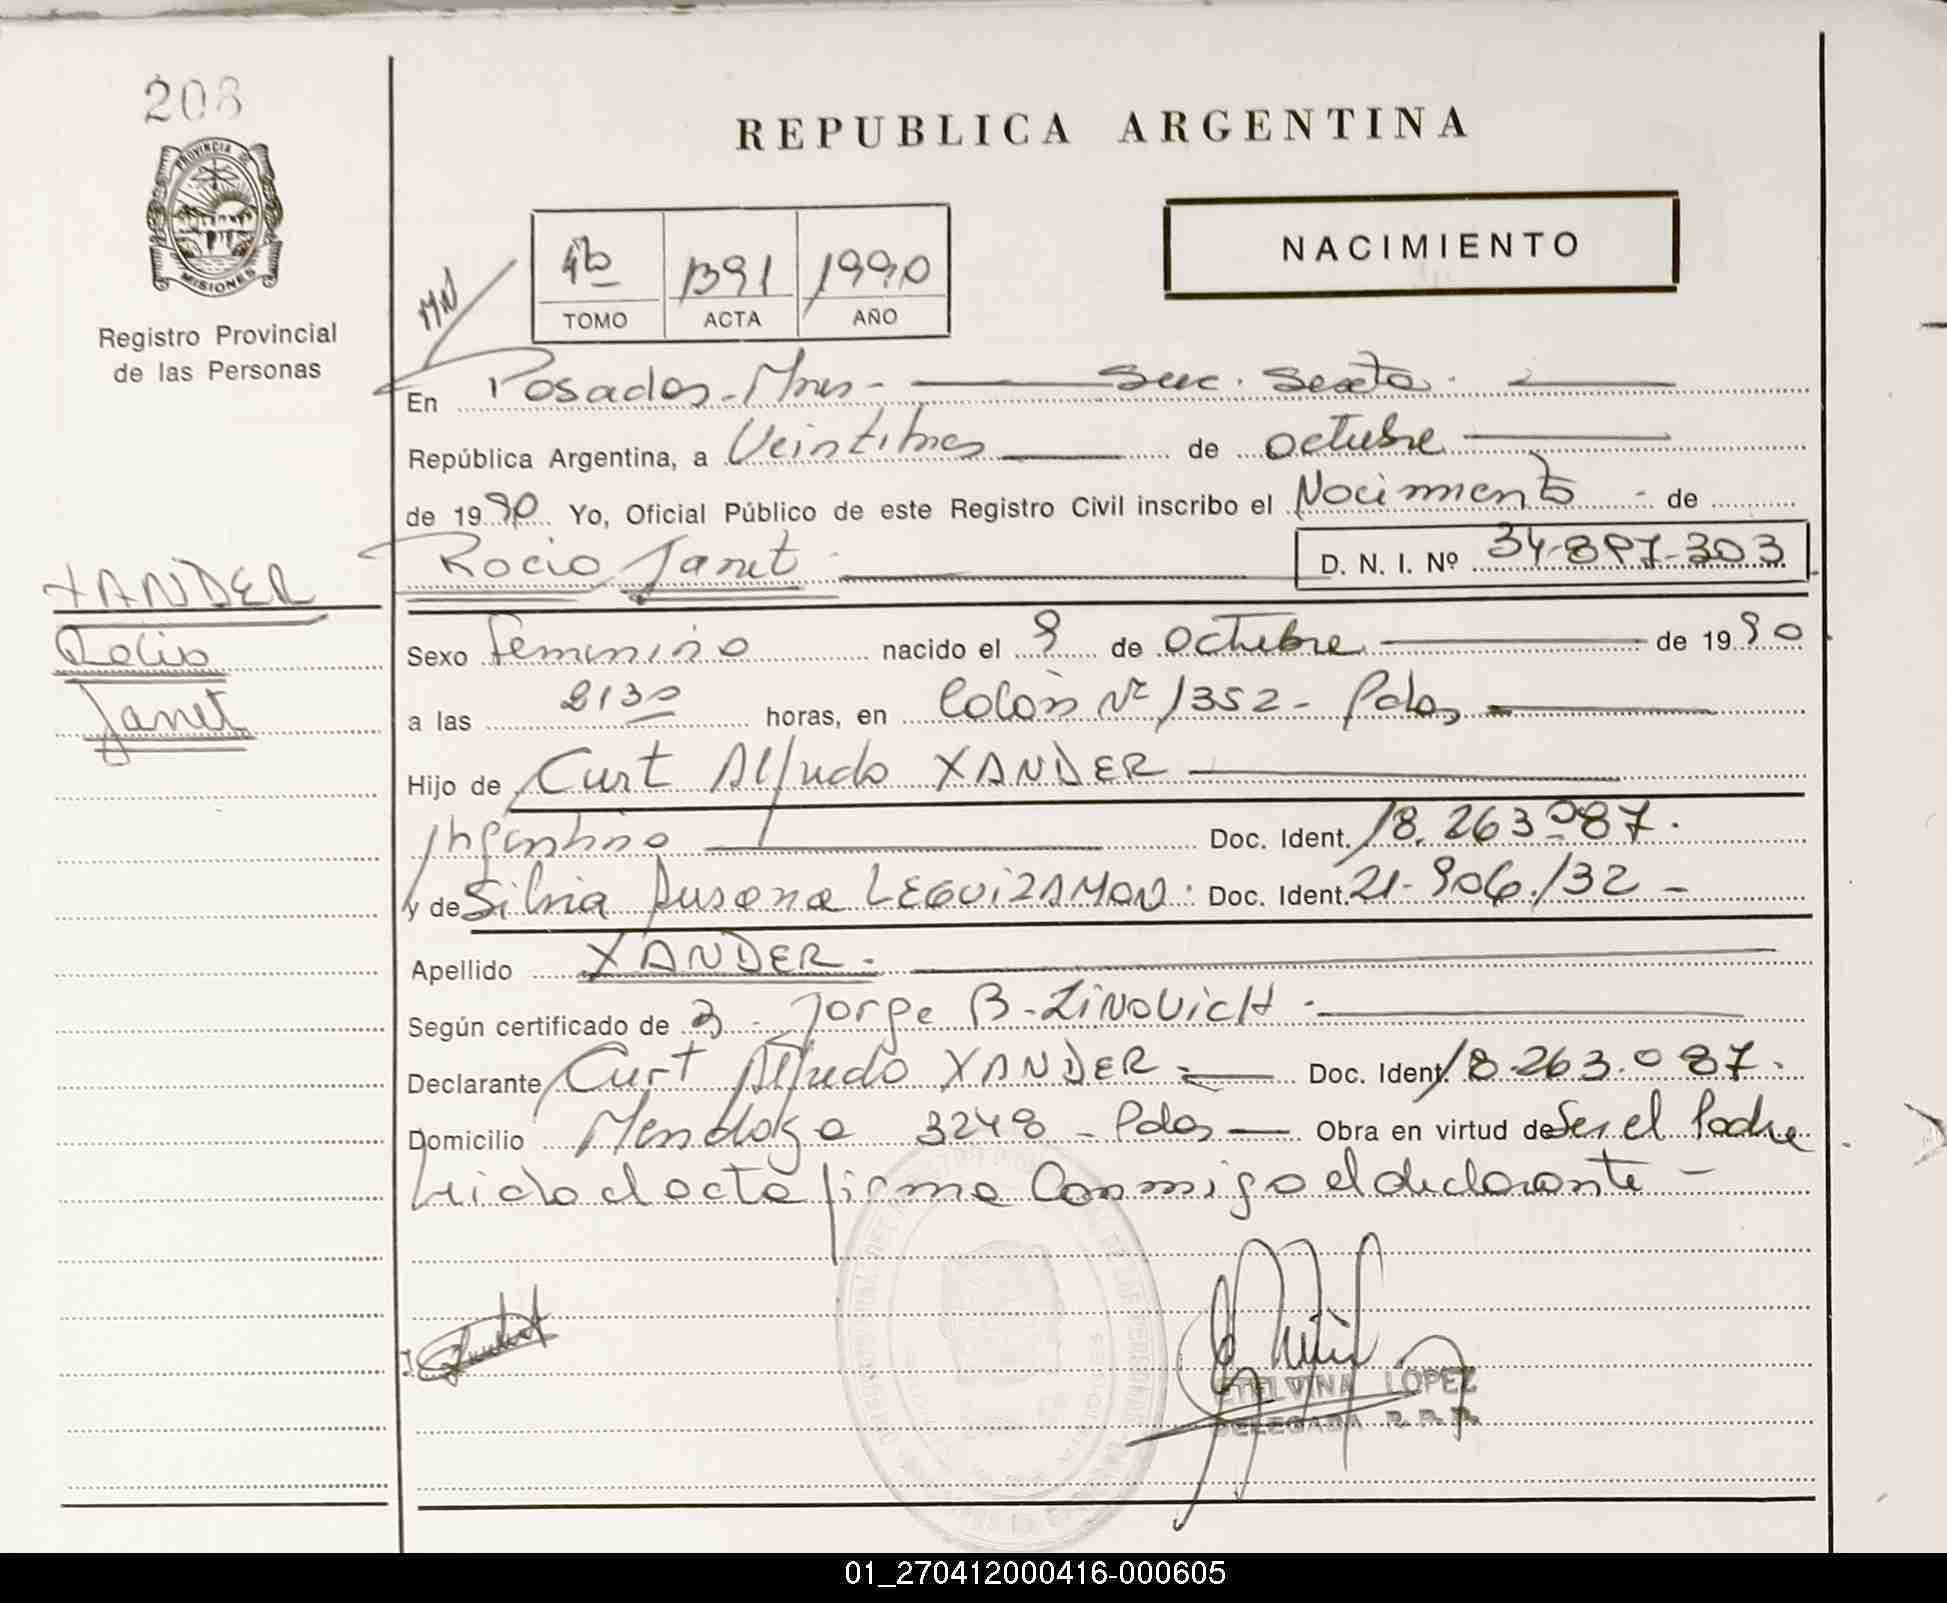 208
PROVINCIA DE
MISIONES
Registro Provincial
de las Personas
XANDER
Rocio
Janet
REPUBLICA ARGENTINA
NACIMIENTO
4to 1391 1990
TOMO ACTA AÑO
En Posadas - Mnes - Secc. Sexta.
República Argentina, a Veintitres de octubre
de 1990 Yo, Oficial Público de este Registro Civil inscribo el Nacimiento - de
Rocio Janet
D. N. I. Nº 34-897-303
Sexo femenino nacido el 9 de octubre de 1990
a las 2130 horas, en Colón Nº 1352 - Pdas
Hijo de Curt Alfredo XANDER
Argentino Doc. Ident. 18.263.087.
y de Silvia Susana LEGUIZAMON: Doc. Ident. 21-906.132 -
Apellido XANDER -
Según certificado de Jorge B. ZINOVICH -
Declarante Curt Alfredo XANDER Doc. Ident. 18.263.087.
Domicilio Mendoza 3248 - Pdas Obra en virtud de Ser el Padre
Leida el acta firma Conmigo el declarante -
ETELVINA LOPEZ
DELEGADA R.P.P.
01_270412000416-000605